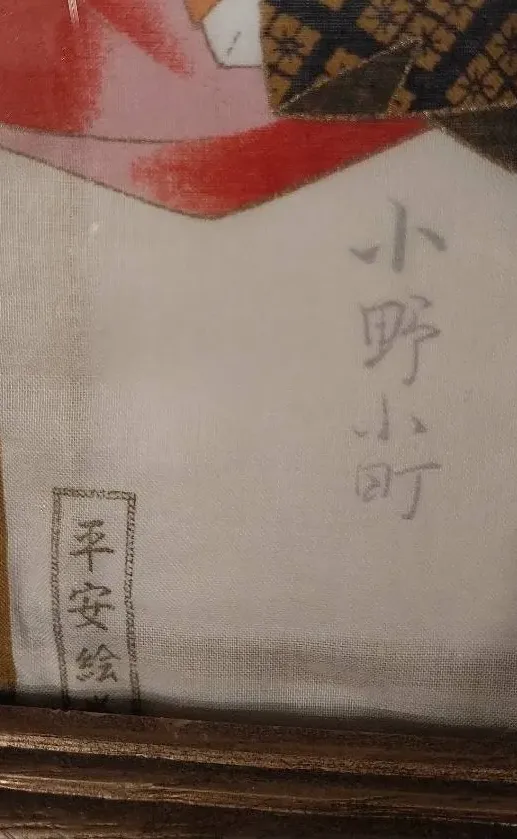 小野小町
平安絵